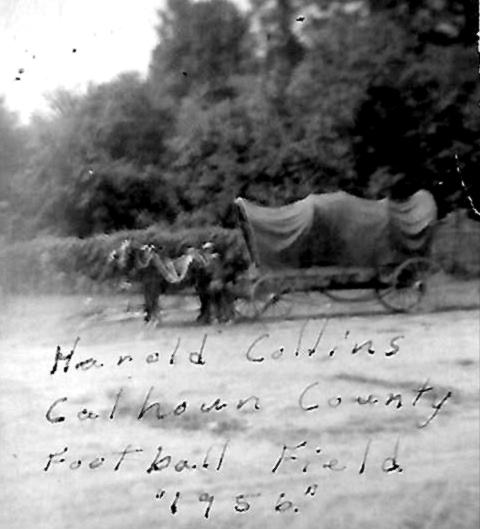 Harold Collins
Calhoun County
Football Field
"1956."